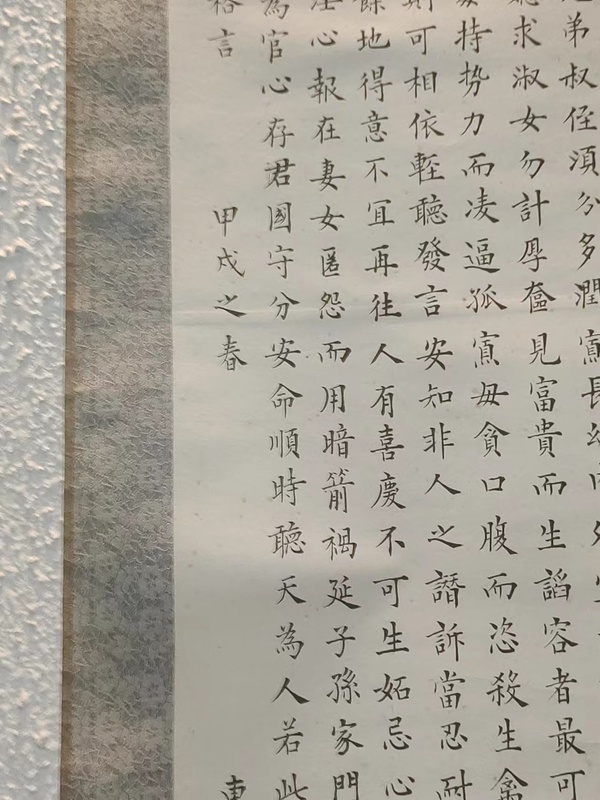 弟叔侄須分多潤寡長幼內外
求淑女勿計厚奩見富貴而生諂容者最可
持势力而凌逼孤寡毋貪口腹而恣殺生禽
則可相依輕聽發言安知非人之譖訴當忍耐
餘地得意不宜再往人有喜慶不可生妬忌心
淫心報在妻女匿怨而用暗箭禍延子孫家門
為官心存君國守分安命順時聽天為人若此
格言
甲戌之春